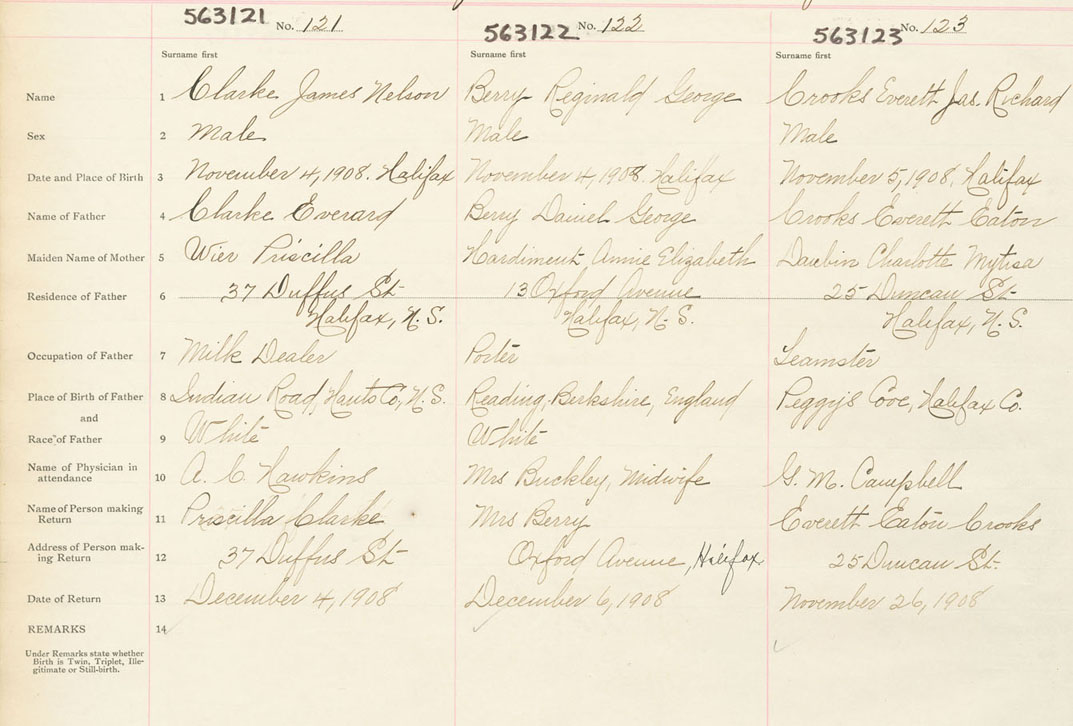 563121 No. 121 563122 No. 122 563123 No. 123
Surname first Surname first Surname first
Name 1 Clarke James Nelson Berry Reginald George Crooks Everett Jas. Richard
Sex 2 Male Male Male
Date and Place of Birth 3 November 4, 1908. Halifax November 4, 1908. Halifax November 5, 1908. Halifax
Name of Father 4 Clarke Everard Berry Daniel George Crooks Everett Eaton
Maiden Name of Mother 5 Wier Priscilla Hardiment Annie Elizabeth Daubin Charlotte
Residence of Father 6 37 Duffus St 13 Oxford Avenue 25 Duncan St
Halifax, N.S. Halifax, N.S. Halifax, N.S.
Occupation of Father 7 Milk Dealer Porter Teamster
Place of Birth of Father 8 Indian Road, Hants Co, N.S. Reading, Berkshire, England Peggy's Cove, Halifax Co.
and
Race of Father 9 White White
Name of Physician in
attendance 10 A. C Hawkins Mrs Buckley, Midwife G. M. Campbell
Name of Person making
Return 11 Priscilla Clarke Mrs Berry Everett Eaton Crooks
Address of Person mak-
ing Return 12 37 Duffus St Oxford Avenue, Halifax 25 Duncan St.
Date of Return 13 December 4, 1908 December 6, 1908 November 26, 1908
REMARKS 14
Under Remarks state whether
Birth is Twin, Triplet, Ille-
gitimate or Still-birth.